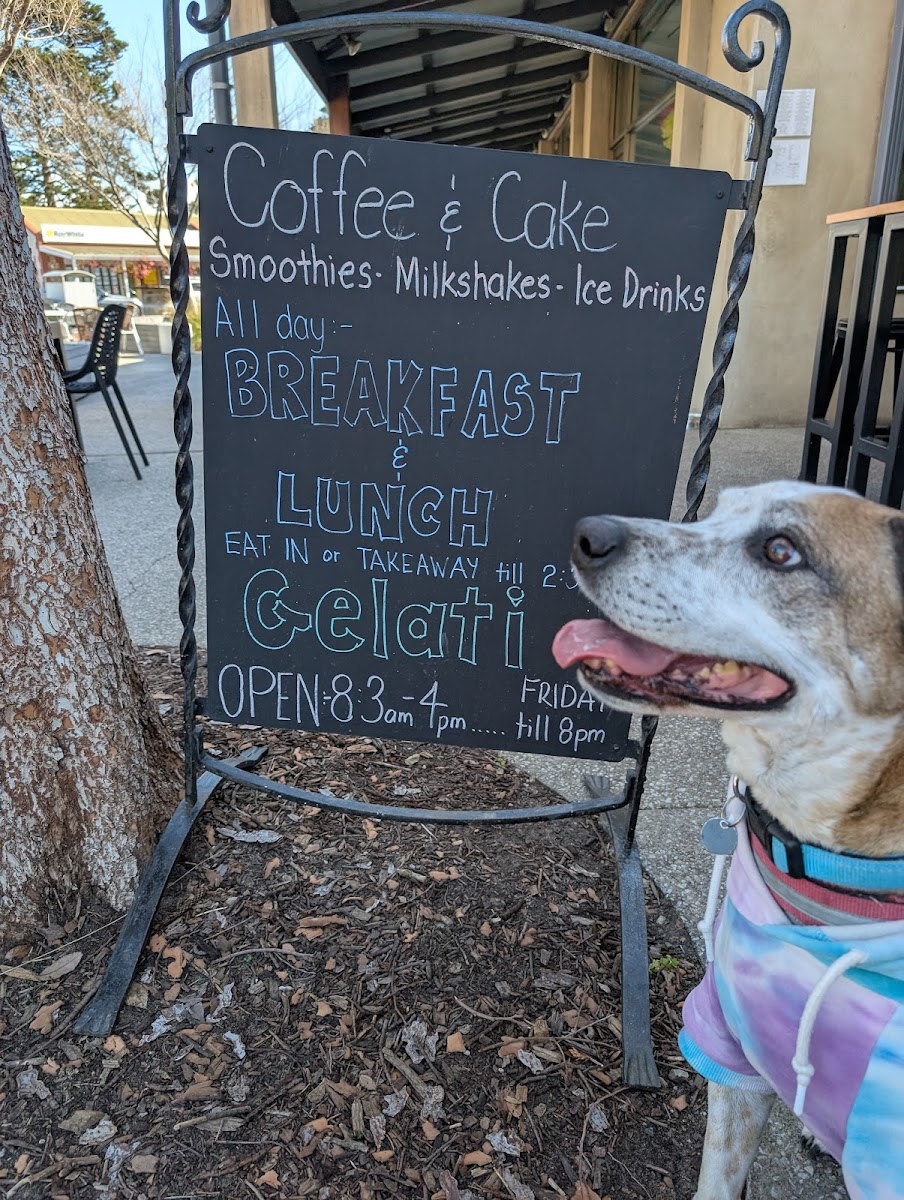 Coffee & Cake
Smoothies - Milkshakes - Ice Drinks
All day :-
BREAKFAST
&
LUNCH
EAT IN or TAKEAWAY till 2:
Gelati
OPEN:- 8:3am - 4pm ..... FRIDAY till 8pm
Ray White